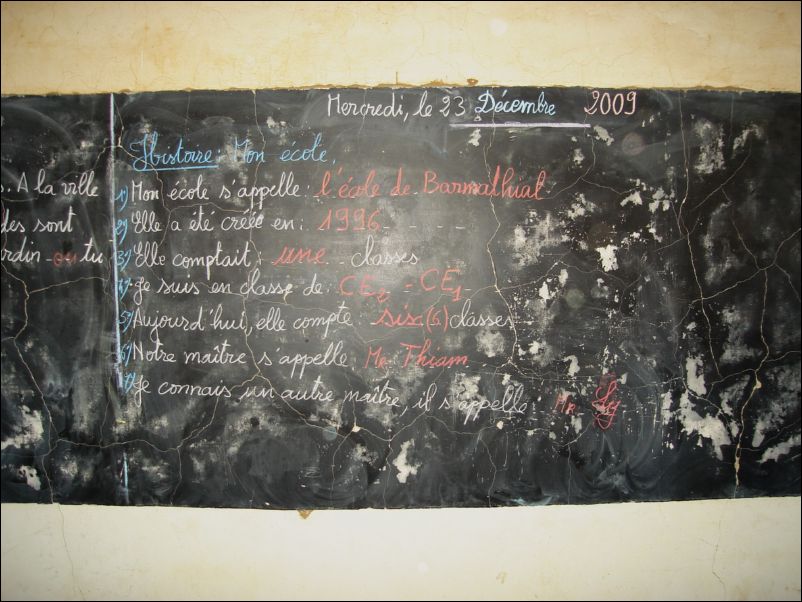 Mercredi, le 23 Décembre 2009
Histoire : Mon école.
s. A la ville
des sont
rdin ou tu
1) Mon école s'appelle : l'école de Barmathial
2) Elle a été créée en : 1996
3) Elle comptait : une classes
4) Je suis en classe de : CE2 - CE1
5) Aujourd'hui, elle compte six (6) classes
6) Notre maître s'appelle Mr Thiam
7) Je connais un autre maître, il s'appelle : Mr Sy